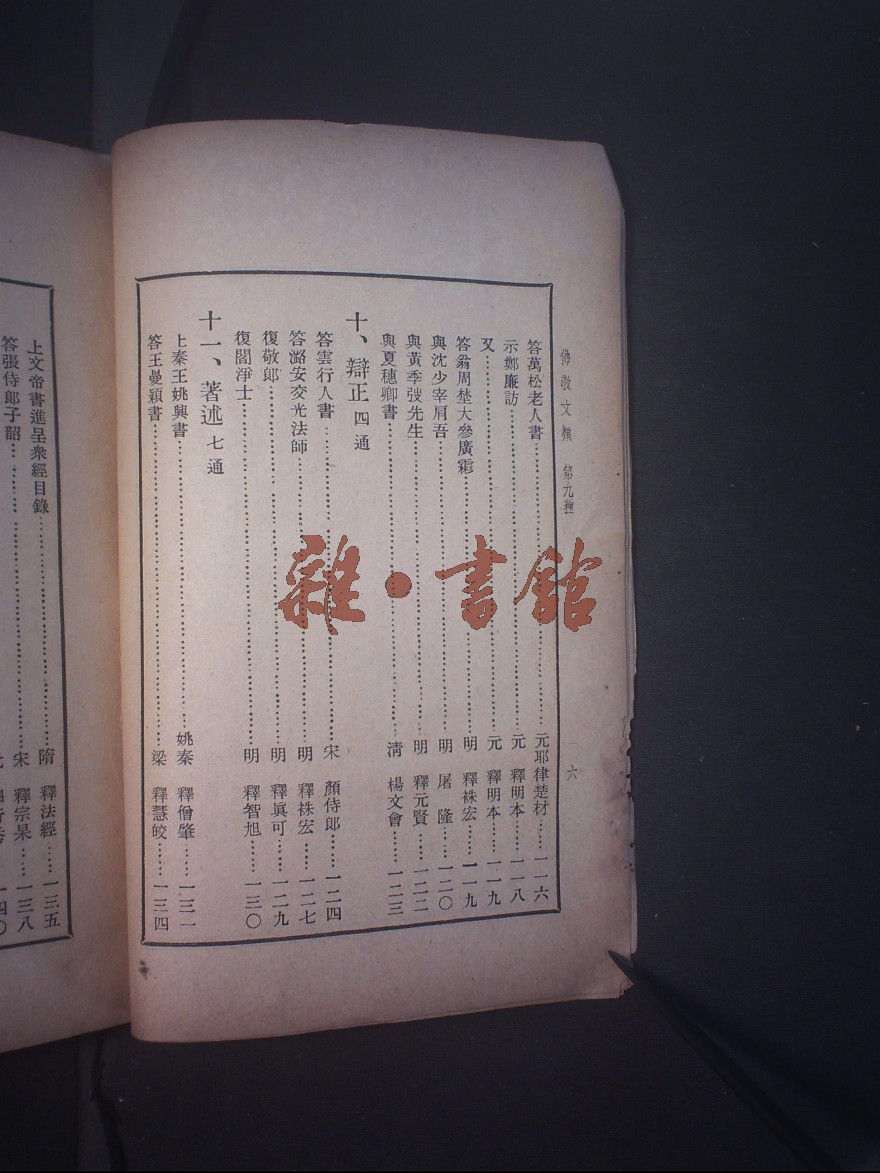 佛教文類 第九種 六
答萬松老人書……元耶律楚材……一一六
示鄭廉訪……元 釋明本……一一八
又……元 釋明本……一一九
答翁周埜大參廣霱……明 釋袾宏……一一九
與沈少宰肩吾……明 屠 隆……一二〇
與黃季弢先生……明 釋元賢……一二二
與夏穗卿書……清 楊文會……一二三
十、辯正 四通
答雲行人書……宋 顏侍郎……一二四
答潞安交光法師……明 釋袾宏……一二七
復敬郎……明 釋眞可……一二九
復閻淨士……明 釋智旭……一三〇
十一、著述 七通
上秦王姚興書……姚秦 釋僧肇……一三一
答王曼穎書……梁 釋慧皎……一三四
上文帝書進呈衆經目錄……隋 釋法經……一三五
答張侍郎子韶……宋 釋宗杲……一三八
一四〇
雜·書館